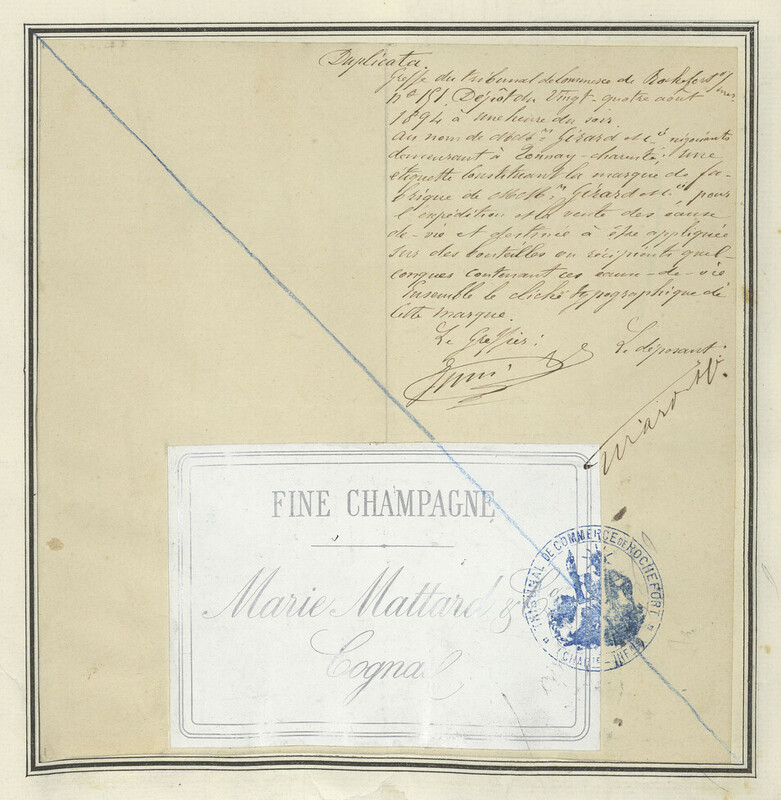 Duplicata.
Greffe du tribunal de Commerce de Rochefort s/ mer.
n° 151. Dépôt du Vingt-quatre août
1894 à une heure du soir
au nom de MM. Gérard et Cie négociants
demeurant à Tonnay-charente. Une
etiquette Constituant la marque de fa-
brique de MM. Gérard et Cie pour
l'expédition et la vente des eaux-
de-vie et destinée à être appliquée
sur des bouteilles ou récipients quel-
conques contenant ces eaux-de-vie
Ensemble le cliché typographique de
cette marque.
Le Greffier: Le déposant:
FINE CHAMPAGNE
Marie Mattard & Co
Cognac
TRIBUNAL DE COMMERCE DE ROCHEFORT
(CHARTE-INFRE)